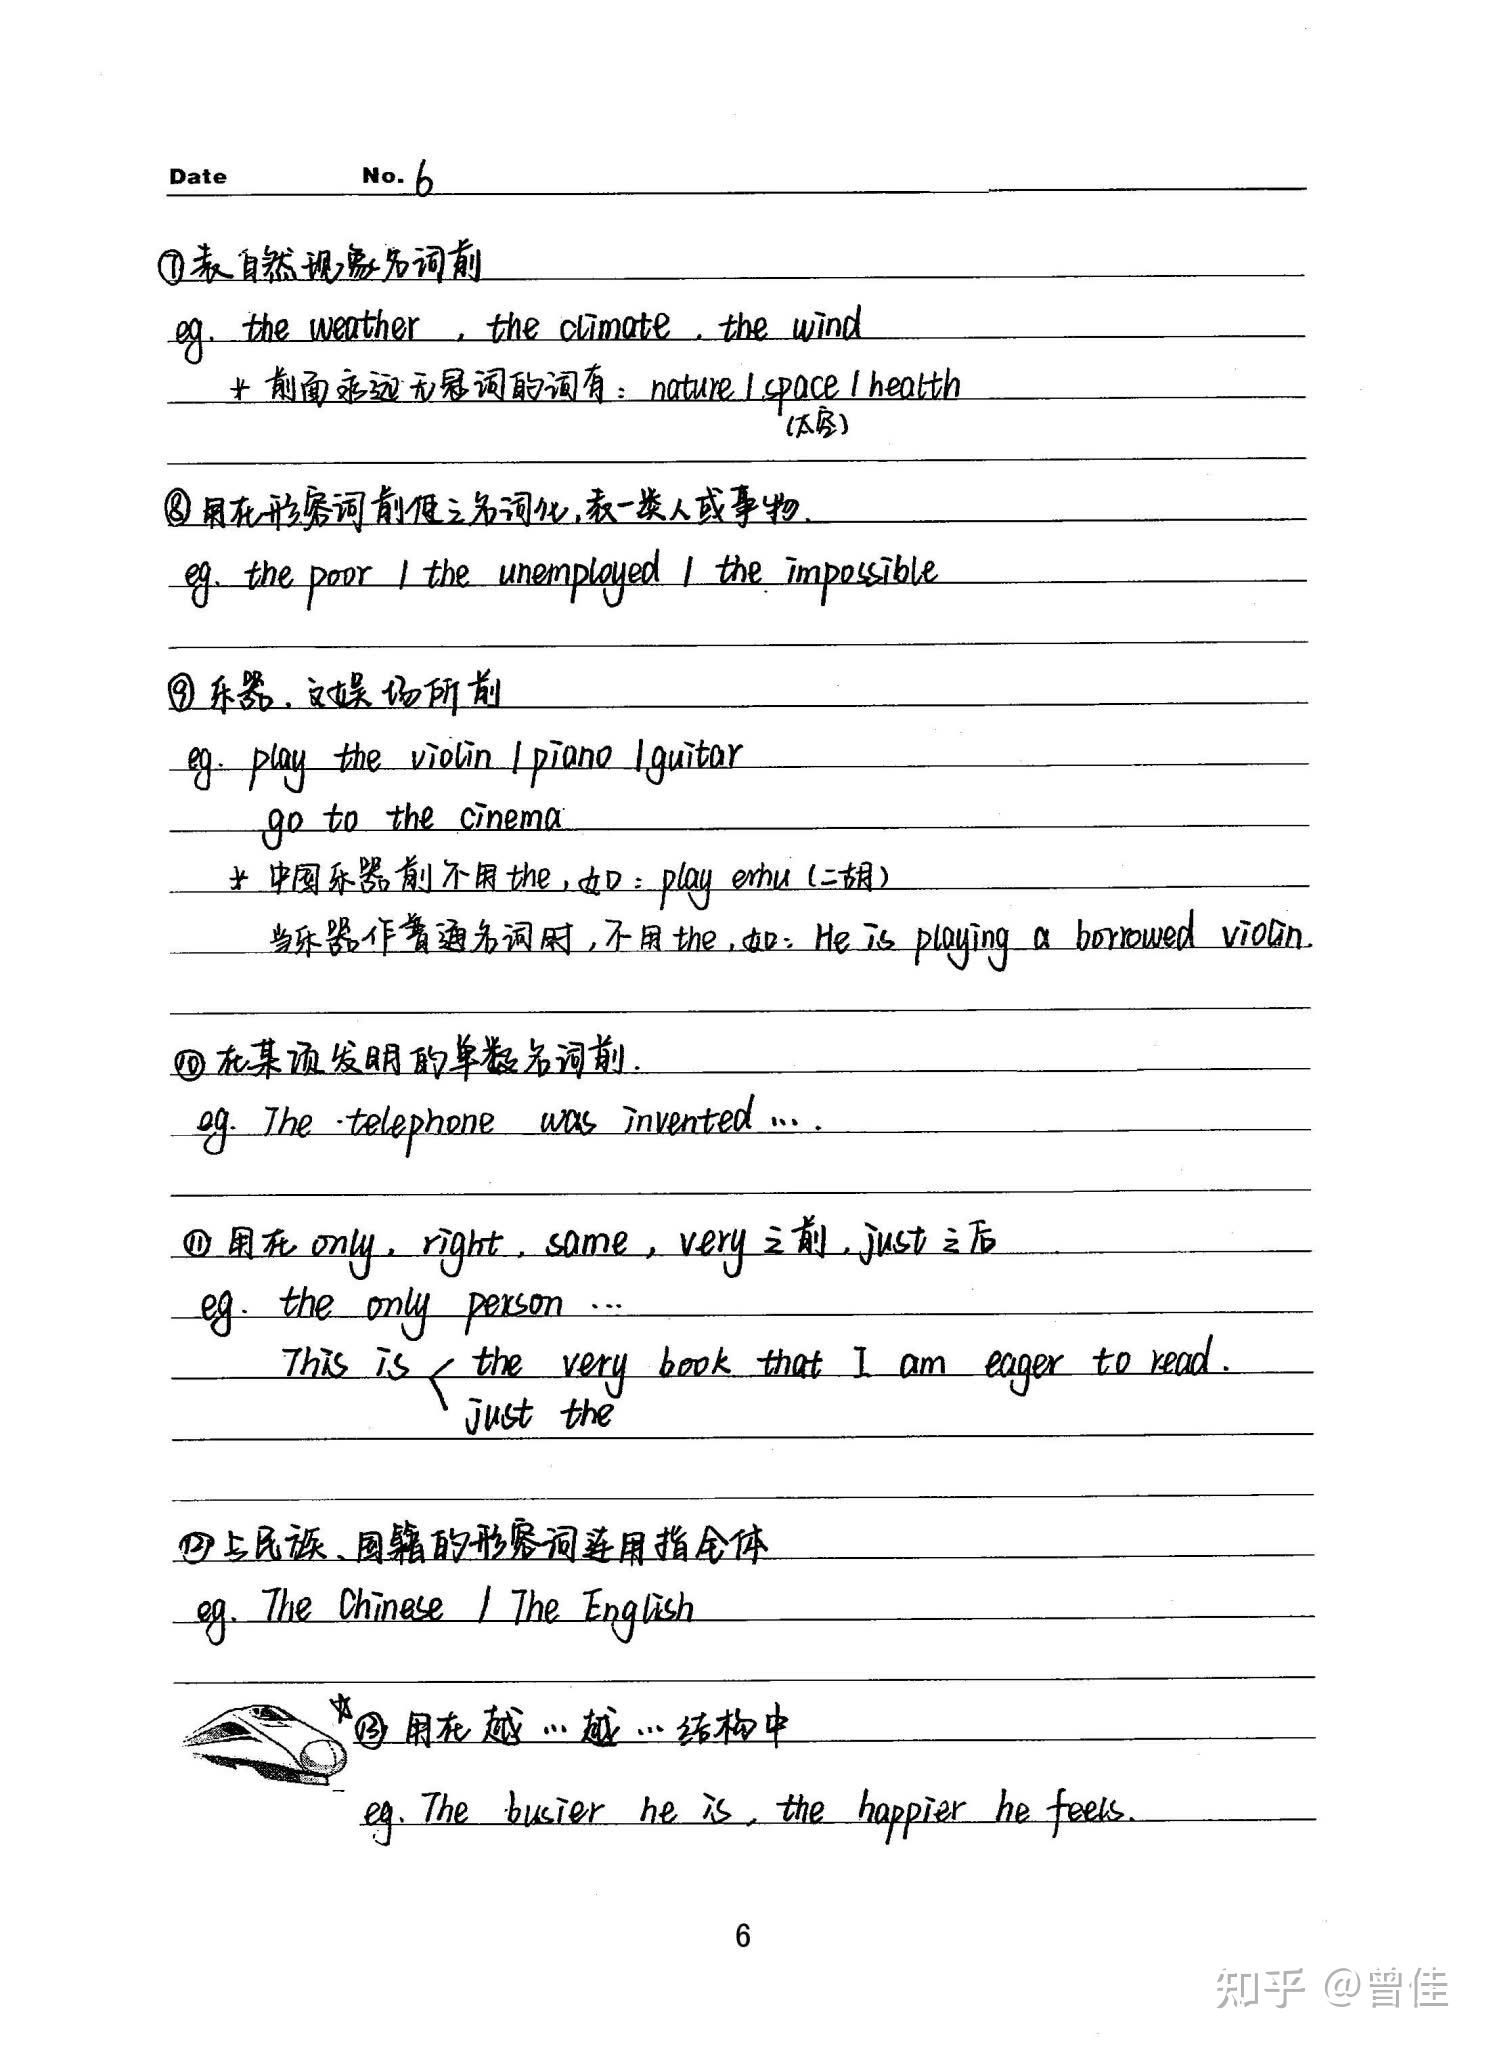 Date No. 6
⑦表自然现象名词前
eg. the weather , the climate , the wind
* 前面永远无冠词的词有: nature / space / health
(太空)
⑧用在形容词前使之名词化,表一类人或事物.
eg. the poor / the unemployed / the impossible
⑨乐器、文娱场所前
eg. play the violin / piano / guitar
go to the cinema
* 中国乐器前不用the,如: play erhu (二胡)
当乐器作普通名词时,不用the,如: He is playing a borrowed violin.
⑩在某项发明的单数名词前.
eg. The telephone was invented ... .
⑪用在 only, right, same, very之前, just之后
eg. the only person ...
This is < the very book that I am eager to read.
just the
⑫与民族、国籍的形容词连用指全体
eg. The Chinese / The English
☆⑬用在越...越...结构中
eg. The busier he is, the happier he feels.
6
知乎 @曾佳